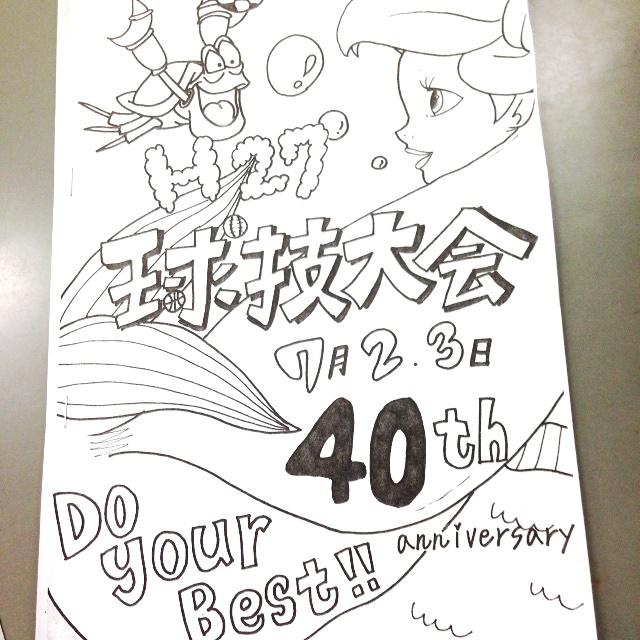 H27
球技大会
7月2.3日
40th
anniversary
Do
your
Best!!